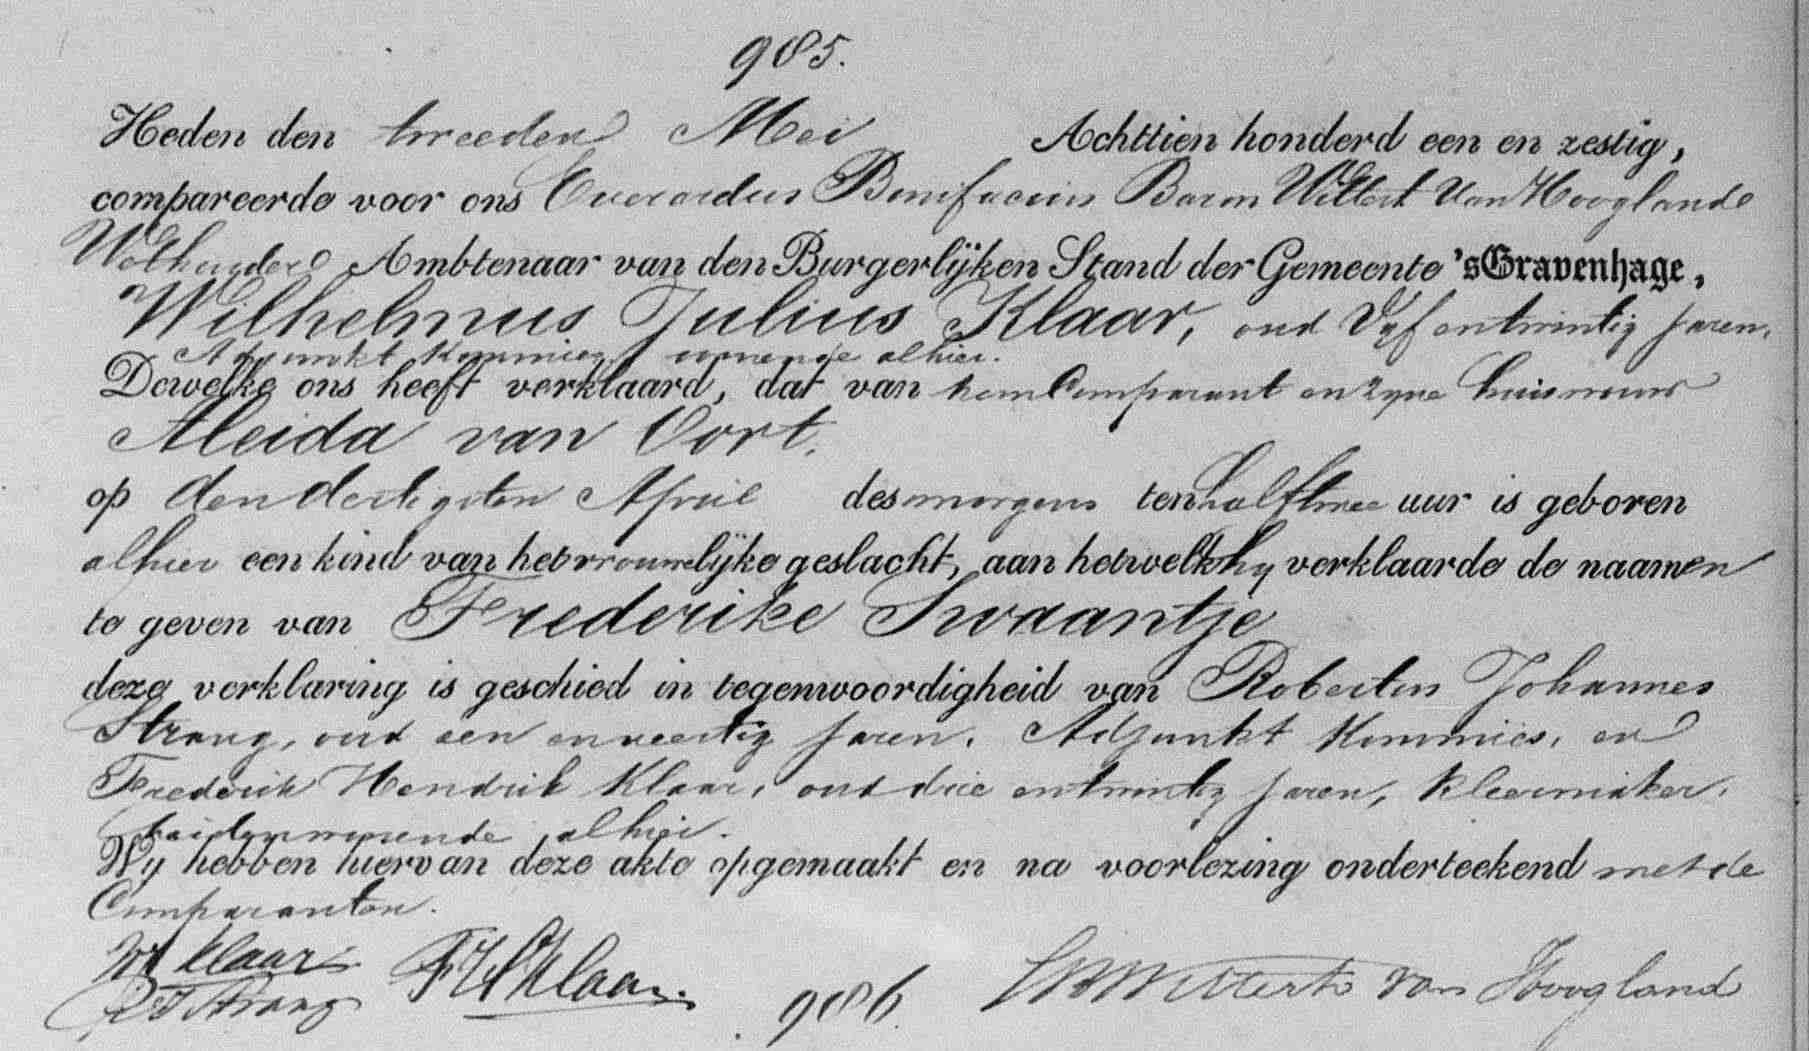 985.
Heden den tweeden Mei Achttien honderd een en zestig,
compareerde voor ons Everardus Bonifacius Baron Wittert Van Hooglande
Wethouder Ambtenaar van den Burgerlijken Stand der Gemeente 'sGravenhage,
Wilhelmus Julius Klaar, oud Vyf entwintig jaren,
Adjunkt Kommies, wonende alhier.
Dewelke ons heeft verklaard, dat van hem Comparant en zyne huisvrouw
Aleida van Oort,
op den dertigsten April des morgens ten half twee uur is geboren
alhier een kind van het vrouwelijke geslacht, aan hetwelk hy verklaarde de naamen
te geven van Frederike Swaantje
deze verklaring is geschied in tegenwoordigheid van Robertus Johannes
Strang, oud een en veertig jaren, Adjunkt Kommies, en
Frederik Hendrik Klaar, oud drie entwintig jaren, kleermaker,
beiden wonende alhier.
Wij hebben hiervan deze akte opgemaakt en na voorlezing onderteekend met de
Comparanten.
WJ Klaar FH Klaar. EB Wittert van Hoogland
RJ Strang
986.